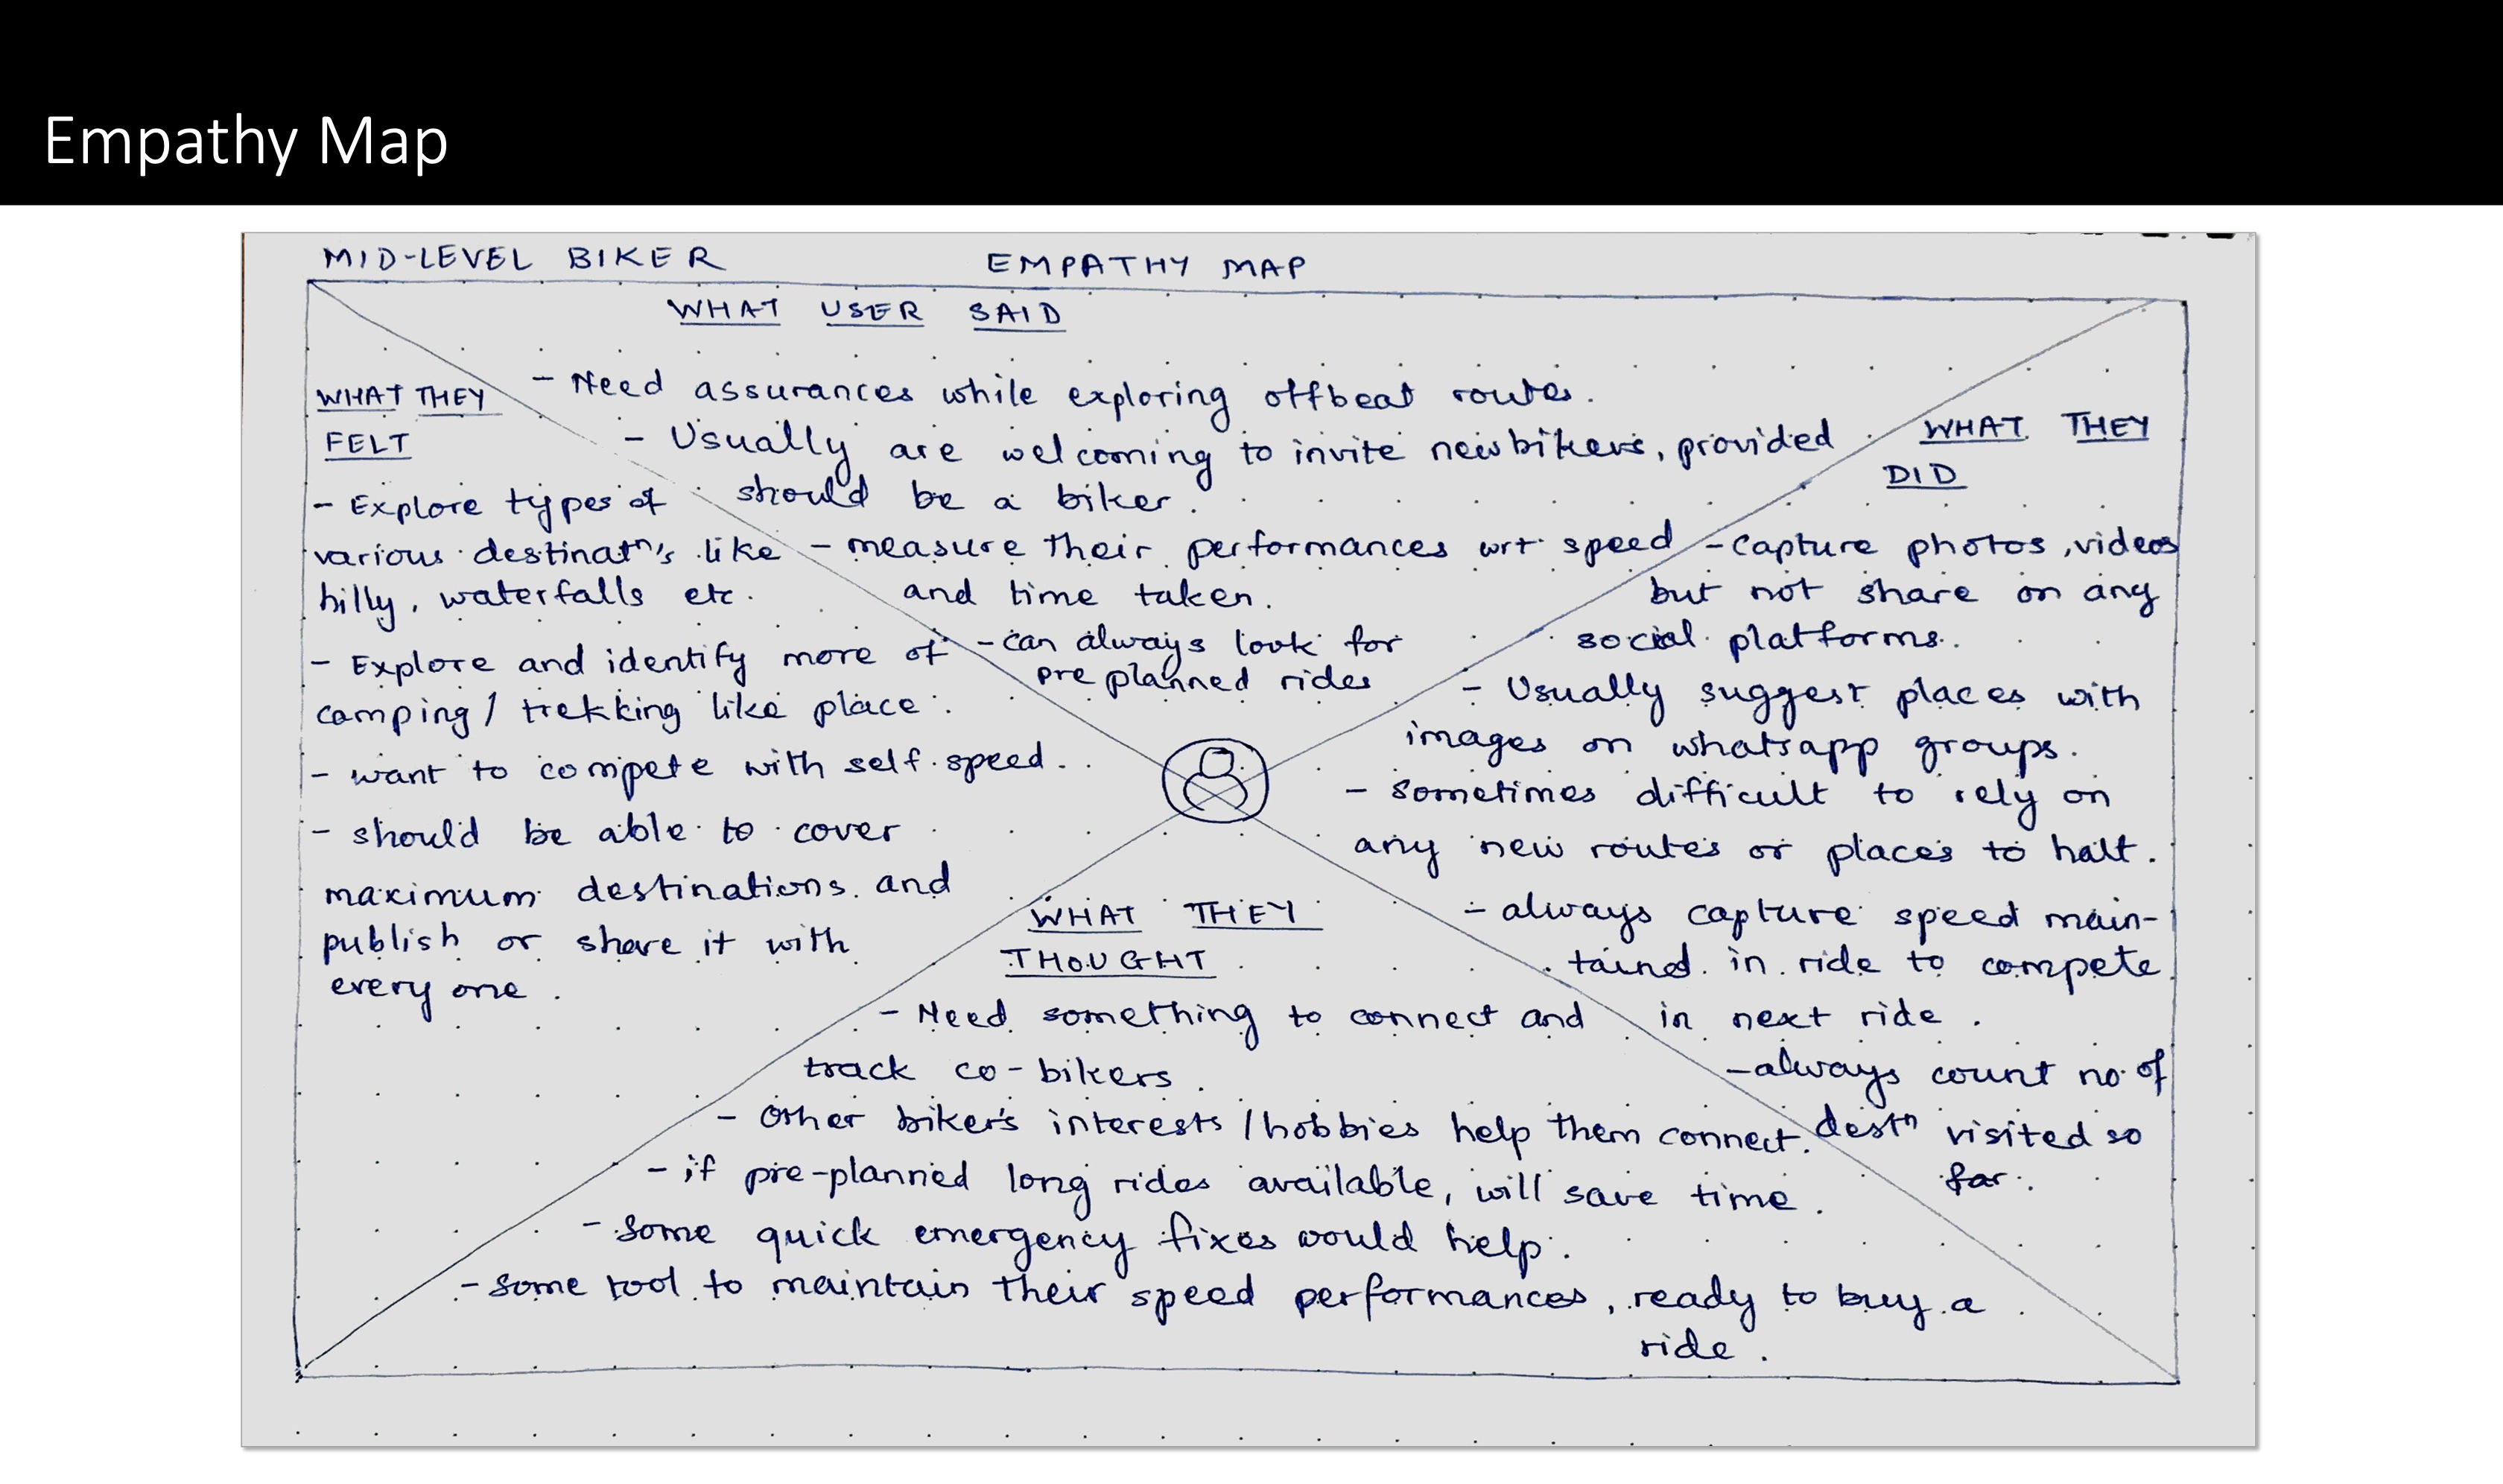 Empathy Map
MID-LEVEL BIKER
EMPATHY MAP
WHAT USER SAID
- Need assurances while exploring offbeat routes.
- Usually are welcoming to invite new bikers, provided
should be a biker.
- measure their performances wrt speed
and time taken.
- can always look for
pre planned rides
WHAT THEY
FELT
- Explore types of
various destinatⁿ's like
hilly, waterfalls etc.
- Explore and identify more of
camping / trekking like place.
- want to compete with self speed.
- should be able to cover
maximum destinations and
publish or share it with
every one.
WHAT THEY
DID
- Capture photos, videos
but not share on any
social platforms.
- Usually suggest places with
images on whatsapp groups.
- sometimes difficult to rely on
any new routes or places to halt.
- always capture speed main-
tained in ride to compete
in next ride.
- always count no. of
destⁿ visited so
far.
WHAT THEY
THOUGHT
- Need something to connect and
track co-bikers.
- Other biker's interests / hobbies help them connect.
- if pre-planned long rides available, will save time.
- Some quick emergency fixes would help.
- some tool to maintain their speed performances, ready to buy a
ride.